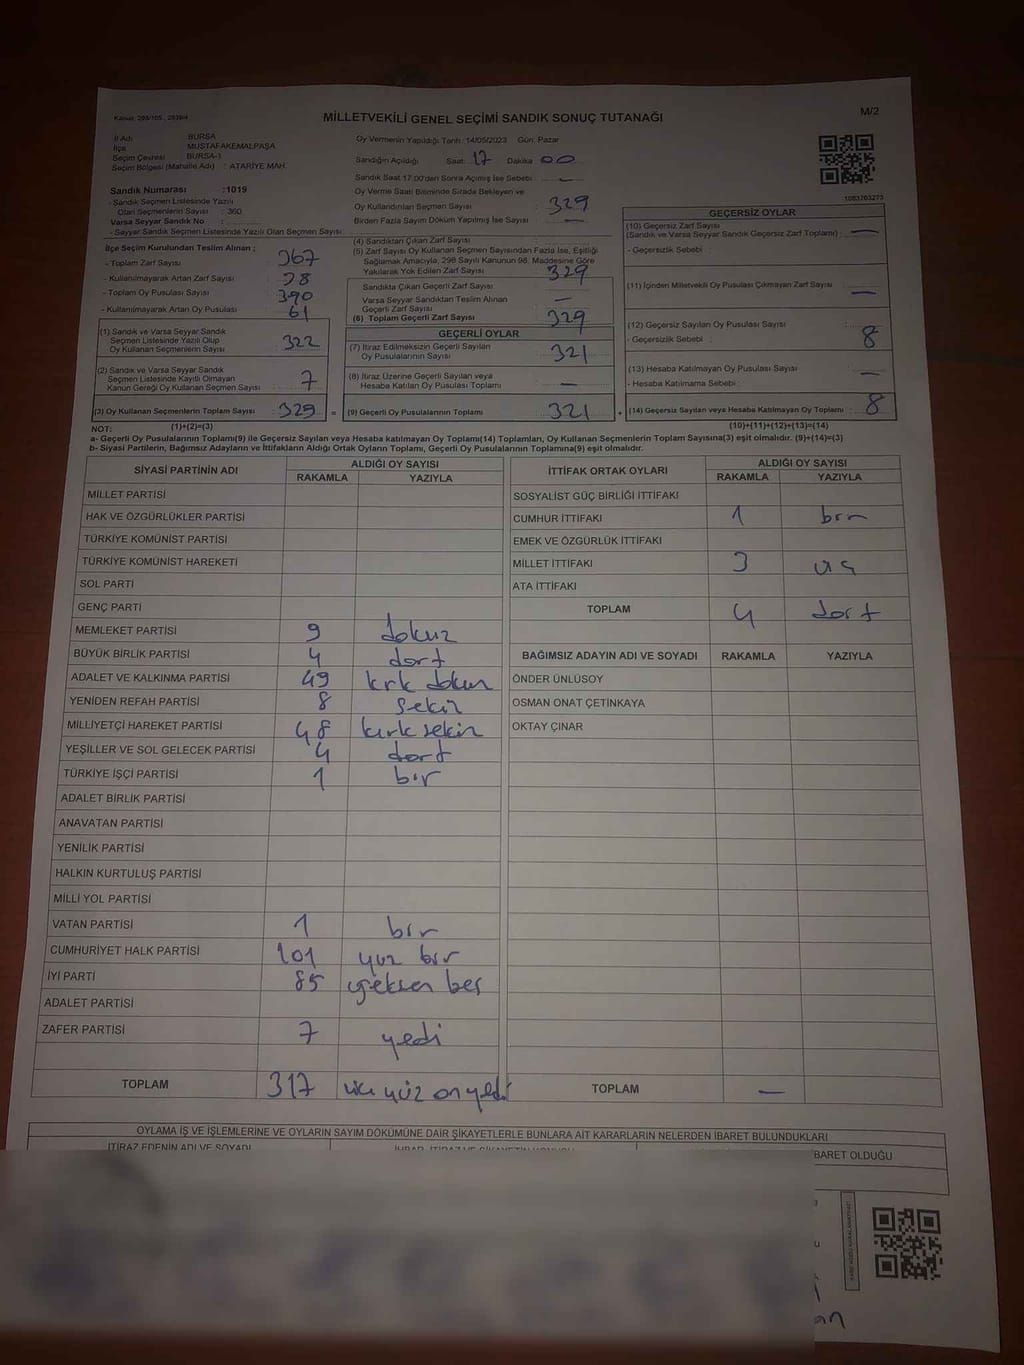 Kanun: 298/105 , 2839/4
MİLLETVEKİLİ GENEL SEÇİMİ SANDIK SONUÇ TUTANAĞI
M/2
İl Adı : BURSA
İlçe : MUSTAFAKEMALPAŞA
Seçim Çevresi : BURSA-1
Seçim Bölgesi (Mahalle Adı) : ATARİYE MAH.
Sandık Numarası :1019
- Sandık Seçmen Listesinde Yazılı
Olan Seçmenlerin Sayısı : 360
Varsa Seyyar Sandık No :
- Seyyar Sandık Seçmen Listesinde Yazılı Olan Seçmen Sayısı
Oy Vermenin Yapıldığı Tarih: 14/05/2023 Gün: Pazar
Sandığın Açıldığı Saat: 17 Dakika 00
Sandık Saat 17:00'den Sonra Açılmış İse Sebebi : —
Oy Verme Saati Bitiminde Sırada Bekleyen ve
Oy Kullandırılan Seçmen Sayısı : 329
Birden Fazla Sayım Döküm Yapılmış İse Sayısı : —
1083703273
İlçe Seçim Kurulundan Teslim Alınan ;
- Toplam Zarf Sayısı : 367
- Kullanılmayarak Artan Zarf Sayısı : 38
- Toplam Oy Pusulası Sayısı : 390
- Kullanılmayarak Artan Oy Pusulası : 61
(1) Sandık ve Varsa Seyyar Sandık
Seçmen Listesinde Yazılı Olup
Oy Kullanan Seçmenlerin Sayısı : 322
(2) Sandık ve Varsa Seyyar Sandık
Seçmen Listesinde Kayıtlı Olmayan
Kanun Gereği Oy Kullanan Seçmen Sayısı : 7
(3) Oy Kullanan Seçmenlerin Toplam Sayısı : 329 =
(4) Sandıktan Çıkan Zarf Sayısı :
(5) Zarf Sayısı Oy Kullanan Seçmen Sayısından Fazla İse, Eşitliği
Sağlamak Amacıyla, 298 Sayılı Kanunun 98. Maddesine Göre
Yakılarak Yok Edilen Zarf Sayısı : 329
Sandıkta Çıkan Geçerli Zarf Sayısı :
Varsa Seyyar Sandıktan Teslim Alınan
Geçerli Zarf Sayısı : —
(6) Toplam Geçerli Zarf Sayısı : 329
GEÇERLİ OYLAR
(7) İtiraz Edilmeksizin Geçerli Sayılan
Oy Pusulalarının Sayısı : 321
(8) İtiraz Üzerine Geçerli Sayılan veya
Hesaba Katılan Oy Pusulası Toplamı : —
(9) Geçerli Oy Pusulalarının Toplamı : 321 +
GEÇERSİZ OYLAR
(10) Geçersiz Zarf Sayısı
(Sandık ve Varsa Seyyar Sandık Geçersiz Zarf Toplamı) : —
- Geçersizlik Sebebi :
(11) İçinden Milletvekili Oy Pusulası Çıkmayan Zarf Sayısı : —
(12) Geçersiz Sayılan Oy Pusulası Sayısı : 8
- Geçersizlik Sebebi :
(13) Hesaba Katılmayan Oy Pusulası Sayısı : —
- Hesaba Katılmama Sebebi :
(14) Geçersiz Sayılan veya Hesaba Katılmayan Oy Toplamı : 8
NOT: (1)+(2)=(3) (10)+(11)+(12)+(13)=(14)
a- Geçerli Oy Pusulalarının Toplamı(9) ile Geçersiz Sayılan veya Hesaba katılmayan Oy Toplamı(14) Toplamları, Oy Kullanan Seçmenlerin Toplam Sayısına(3) eşit olmalıdır. (9)+(14)=(3)
b- Siyasi Partilerin, Bağımsız Adayların ve İttifakların Aldığı Ortak Oyların Toplamı, Geçerli Oy Pusulalarının Toplamına(9) eşit olmalıdır.
SİYASİ PARTİNİN ADI ALDIĞI OY SAYISI
RAKAMLA YAZIYLA
MİLLET PARTİSİ
HAK VE ÖZGÜRLÜKLER PARTİSİ
TÜRKİYE KOMÜNİST PARTİSİ
TÜRKİYE KOMÜNİST HAREKETİ
SOL PARTİ
GENÇ PARTİ
MEMLEKET PARTİSİ 9 dokuz
BÜYÜK BİRLİK PARTİSİ 4 dort
ADALET VE KALKINMA PARTİSİ 49 kırk dokuz
YENİDEN REFAH PARTİSİ 8 sekiz
MİLLİYETÇİ HAREKET PARTİSİ 48 kırk sekiz
YEŞİLLER VE SOL GELECEK PARTİSİ 4 dort
TÜRKİYE İŞÇİ PARTİSİ 1 bir
ADALET BİRLİK PARTİSİ
ANAVATAN PARTİSİ
YENİLİK PARTİSİ
HALKIN KURTULUŞ PARTİSİ
MİLLİ YOL PARTİSİ
VATAN PARTİSİ 1 bir
CUMHURİYET HALK PARTİSİ 101 yüz bir
İYİ PARTİ 85 seksen beş
ADALET PARTİSİ
ZAFER PARTİSİ 7 yedi
TOPLAM 317 yüz on yedi
İTTİFAK ORTAK OYLARI ALDIĞI OY SAYISI
RAKAMLA YAZIYLA
SOSYALİST GÜÇ BİRLİĞİ İTTİFAKI
CUMHUR İTTİFAKI 1 bir
EMEK VE ÖZGÜRLÜK İTTİFAKI
MİLLET İTTİFAKI 3 üç
ATA İTTİFAKI
TOPLAM 4 dort
BAĞIMSIZ ADAYIN ADI VE SOYADI RAKAMLA YAZIYLA
ÖNDER ÜNLÜSOY
OSMAN ONAT ÇETİNKAYA
OKTAY ÇINAR
TOPLAM —
OYLAMA İŞ VE İŞLEMLERİNE VE OYLARIN SAYIM DÖKÜMÜNE DAİR ŞİKAYETLERLE BUNLARA AİT KARARLARIN NELERDEN İBARET BULUNDUKLARI
İTİRAZ EDENİN ADI VE SOYADI
BARET OLDUĞU